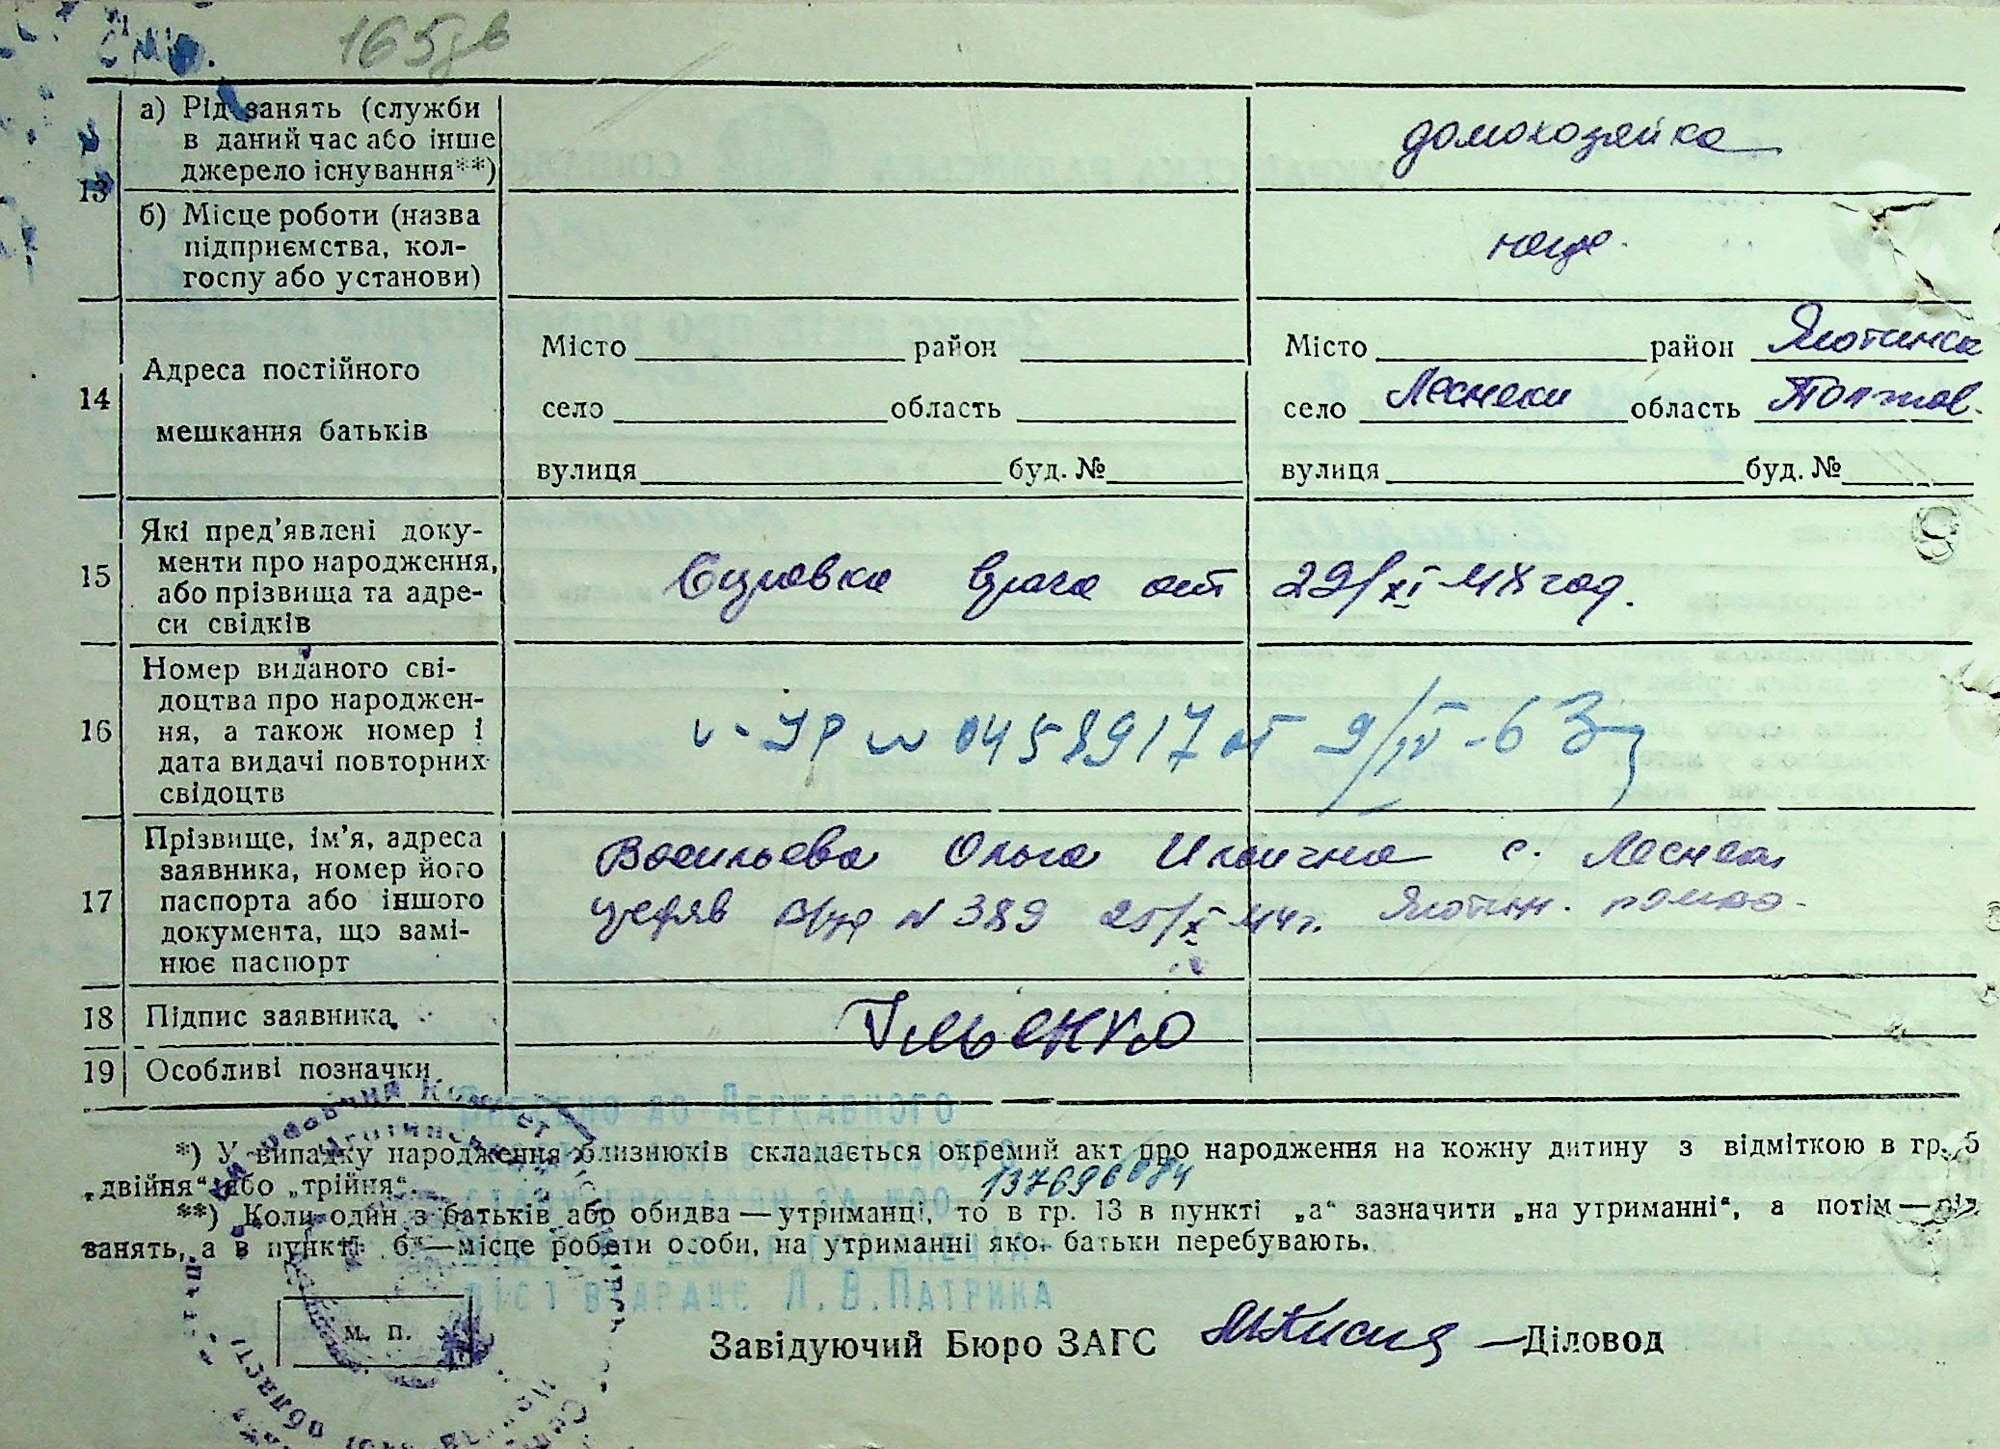 165
13
а) Рід занять (служби в даний час або інше джерело існування**)
домохозяйка
б) Місце роботи (назва підприємства, колгоспу або установи)
14
Адреса постійного мешкання батьків
Місто район
село область
вулиця буд. №
Місто район Яготинск
село Леснеки область Полтав.
вулиця буд. №
15
Які пред’явлені документи про народження, або прізвища та адреси свідків
Справка врача от 29/XI-48 год.
16
Номер виданого свідоцтва про народження, а також номер і дата видачі повторних свідоцтв
0458917 от 9/IV-63г
17
Прізвище, ім’я, адреса заявника, номер його паспорта або іншого документа, що замінює паспорт
Васильева Ольга Ильична с. Леснеки
N 389 25/X 44г. Яготин.
18
Підпис заявника
Ільєнко
19
Особливі позначки
Внесено до Державного
*) У випадку народження близнюків складається окремий акт про народження на кожну дитину з відміткою в гр. 5
„двійня“ або „трійня“.
**) Коли один з батьків або обидва — утриманці, то в гр. 13 в пункті „а“ зазначити „на утриманні“, а потім — рід
занять, а в пункті б — місце роботи особи, на утриманні якої батьки перебувають.
Л.В.Патрика
м. п.
Завідуючий Бюро ЗАГС
—Діловод